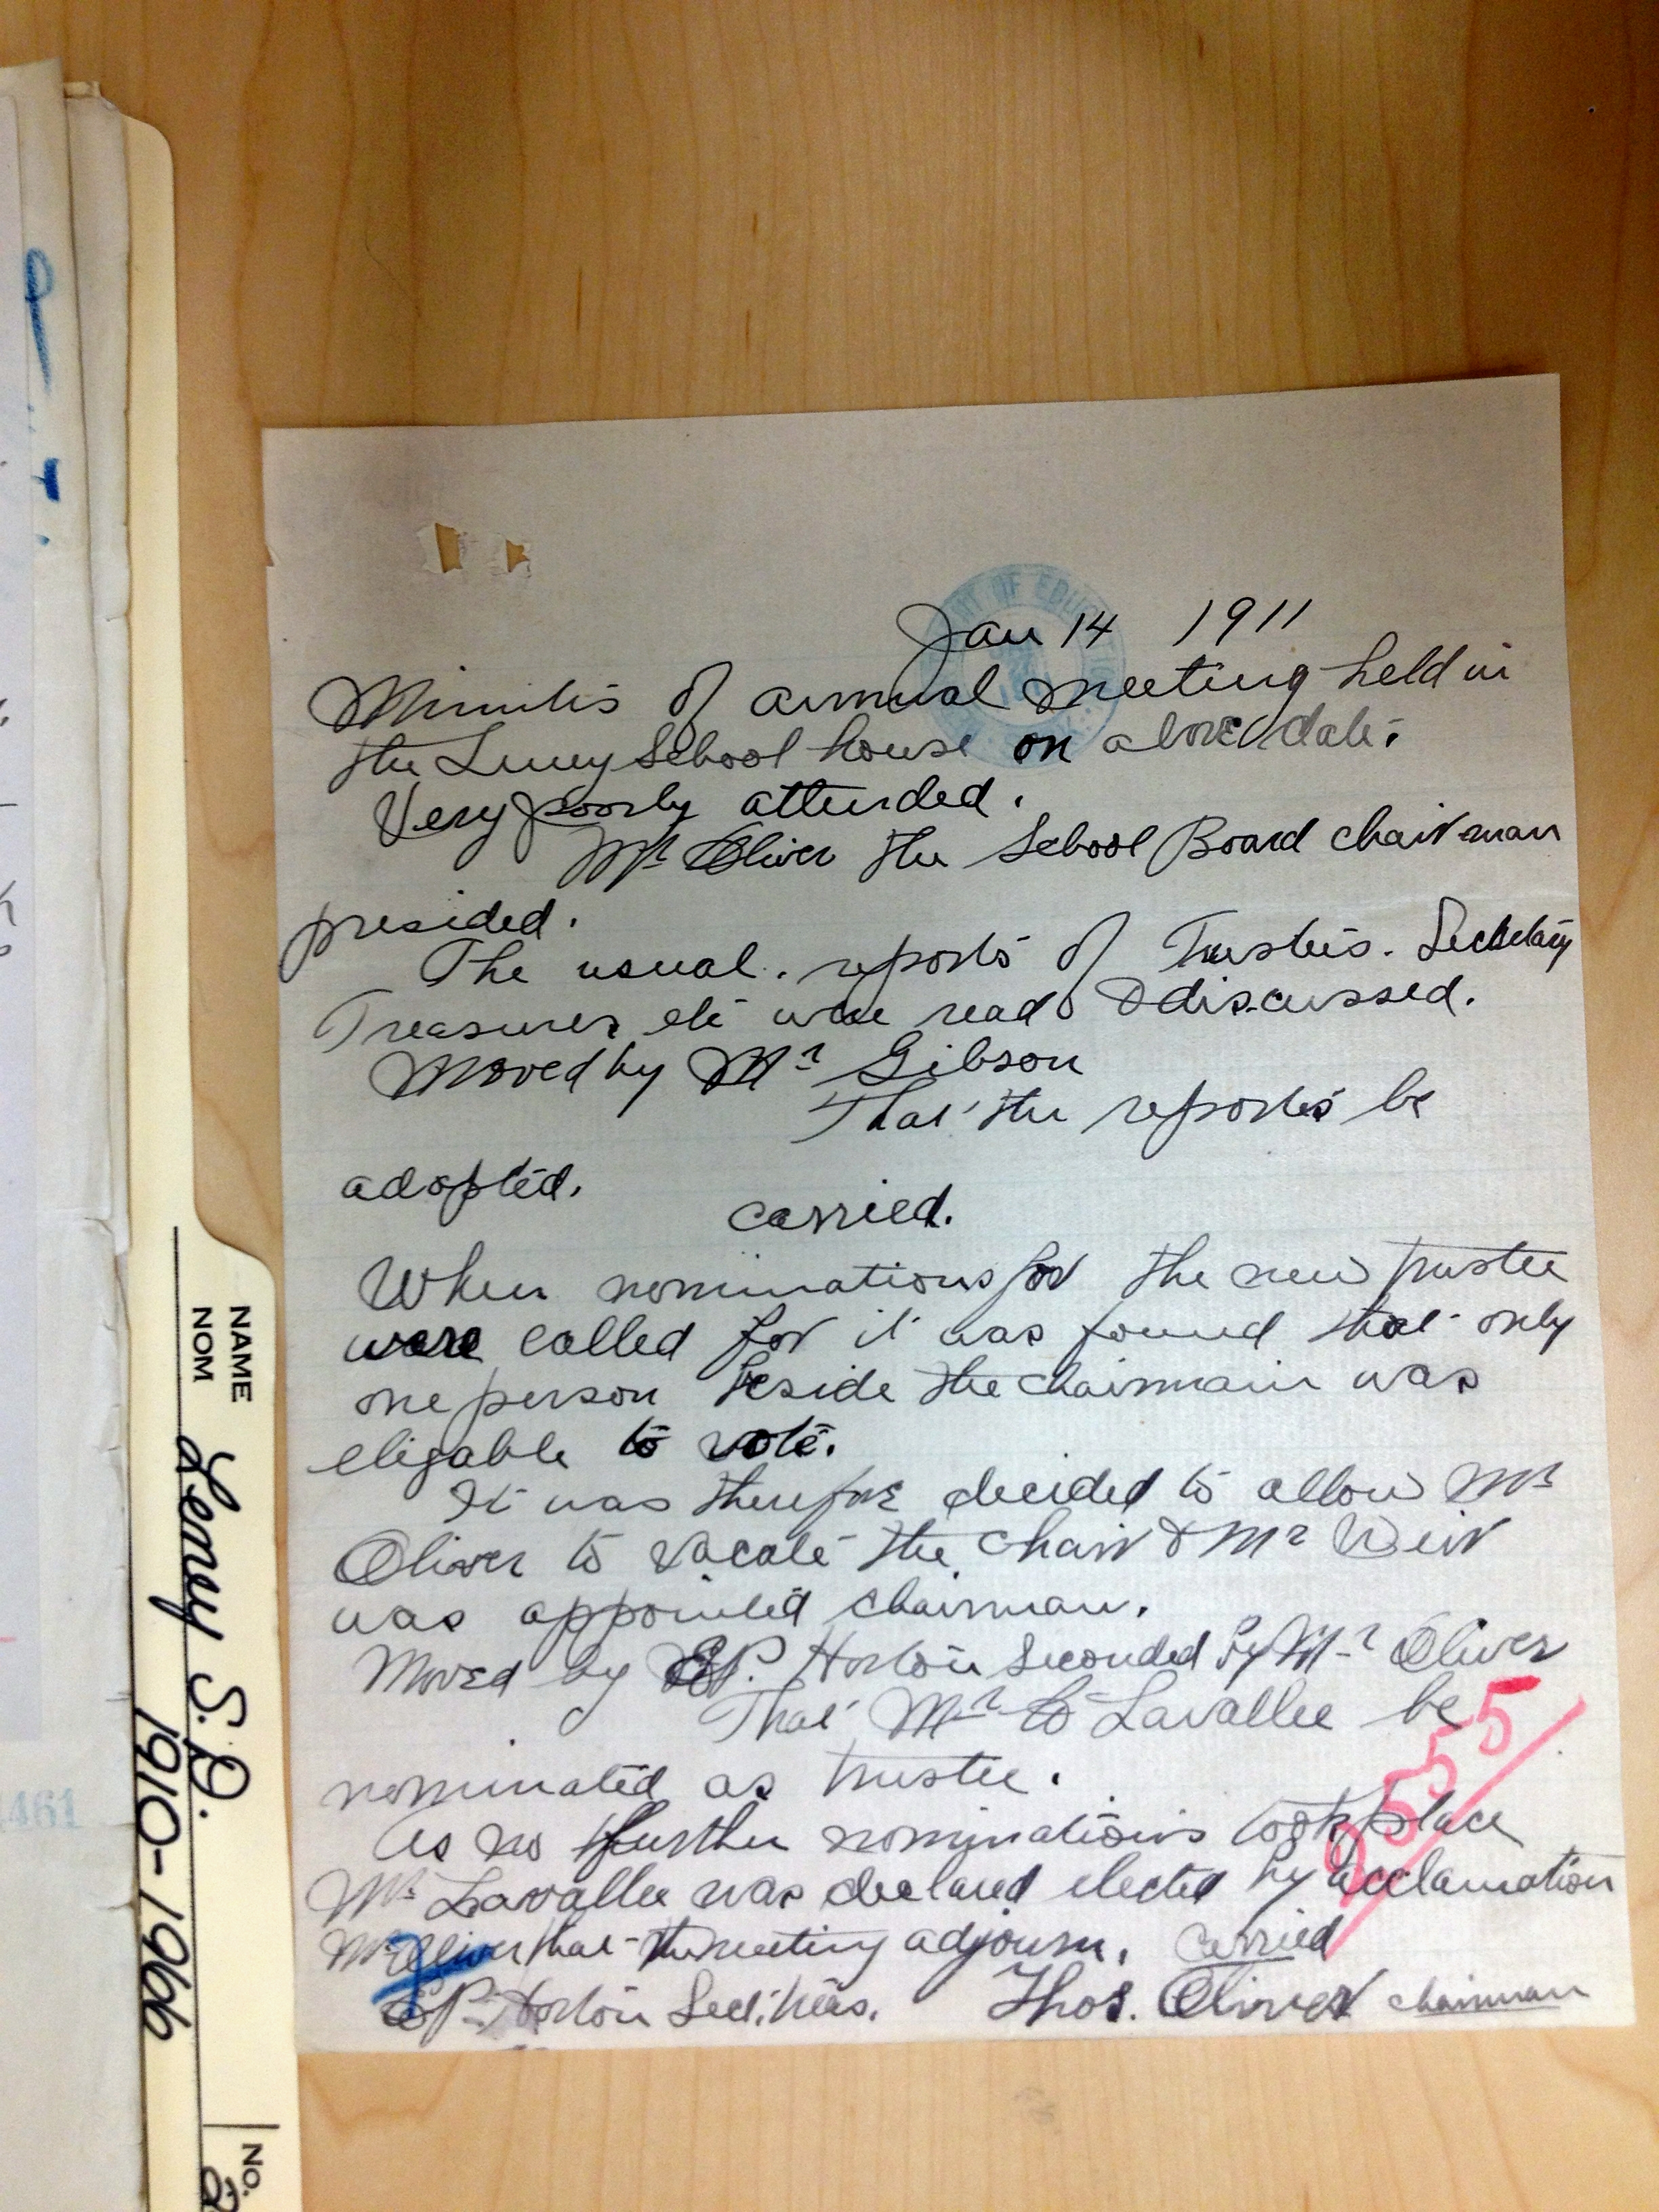 Jan 14 1911
Minutes of annual meeting held in
the Luney School house on above date.
Very poorly attended.
Mr Oliver the School Board chairman
presided.
The usual. reports of Trustees. Secretary
Treasurer etc were read & discussed.
Moved by Mr Gibson
That the reports be
adopted.
carried.
When nominations for the new trustee
were called for it was found that only
one person beside the chairman was
eligable to vote.
It was therefore decided to allow Mr
Oliver to vacate the chair & Mr Weir
was appointed chairman.
Moved by EP. Horton Seconded by Mr Oliver
That Mr Lavallee be
nominated as trustee.
As no further nominations took place
Mr Lavallee was declared elected by acclamation
Mr Oliver that the meeting adjourn. carried
EP. Horton Sec. Treas. Thos. Oliver chairman
OF EDUCATION
2555
NAME
NOM
Leney S.D.
1910-1966
NO.
2
461